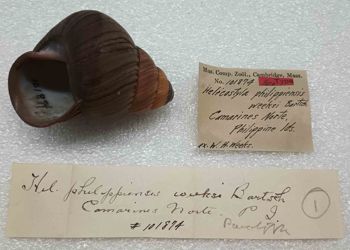 101894
Mus. Comp. Zoöl., Cambridge, Mass.
No. 101894
Helicostyla philippinensis
weeksi Bartsch
Camarines Norte,
Philippine Ids.
ex. W. H. Weeks.
Hel. philippinensis weeksi Bartsch
Camarines Norte. P. I.
# 101894
1